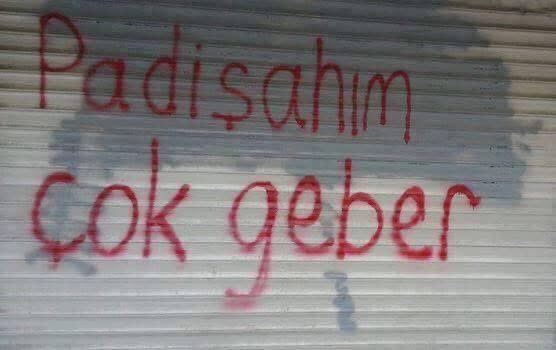 Padişahım
çok geber